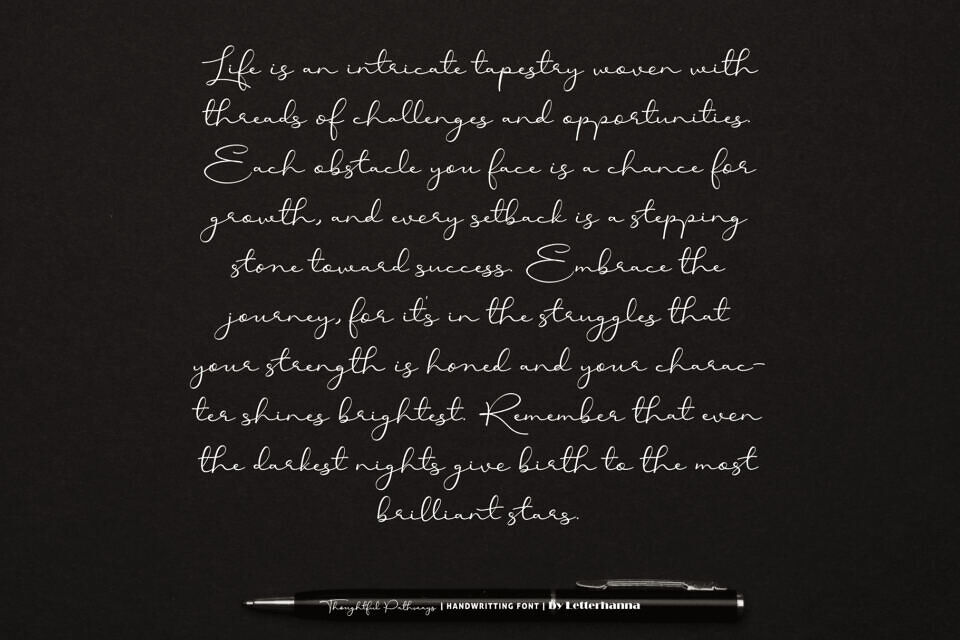 Life is an intricate tapestry woven with
threads of challenges and opportunities.
Each obstacle you face is a chance for
growth, and every setback is a stepping
stone toward success. Embrace the
journey, for it's in the struggles that
your strength is honed and your charac-
ter shines brightest. Remember that even
the darkest nights give birth to the most
brilliant stars.
Thoughtful Pathways | HANDWRITTING FONT | By Letterhanna